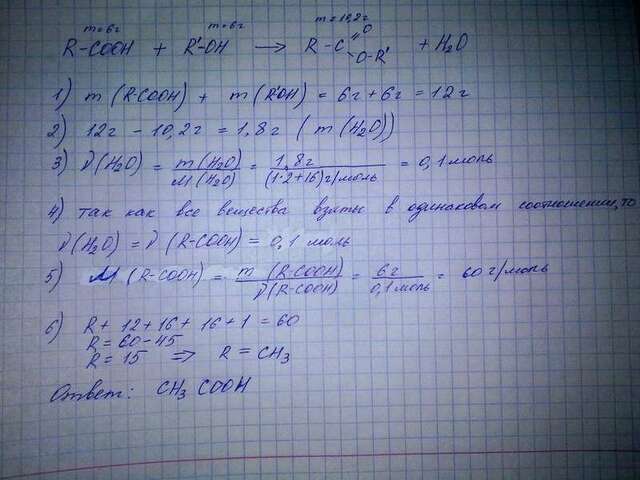 m=6г m=6г m=10,2г
R-COOH + R'-OH → R-C =O -O-R' + H2O
1) m (R-COOH) + m (R'OH) = 6г + 6г = 12г
2) 12г - 10,2г = 1,8г ( m(H2O))
3) ν(H2O) = m(H2O)/M(H2O) = 1,8г/(1·2+16)г/моль = 0,1 моль
4) так как все вещества взяты в одинаковом соотношении, то
ν(H2O) = ν (R-COOH) = 0,1 моль
5) M (R-COOH) = m (R-COOH)/ν(R-COOH) = 6г/0,1моль = 60 г/моль
6) R + 12 + 16 + 16 + 1 = 60
R = 60 - 45
R = 15 ⇒ R = CH3
Ответ: CH3 COOH